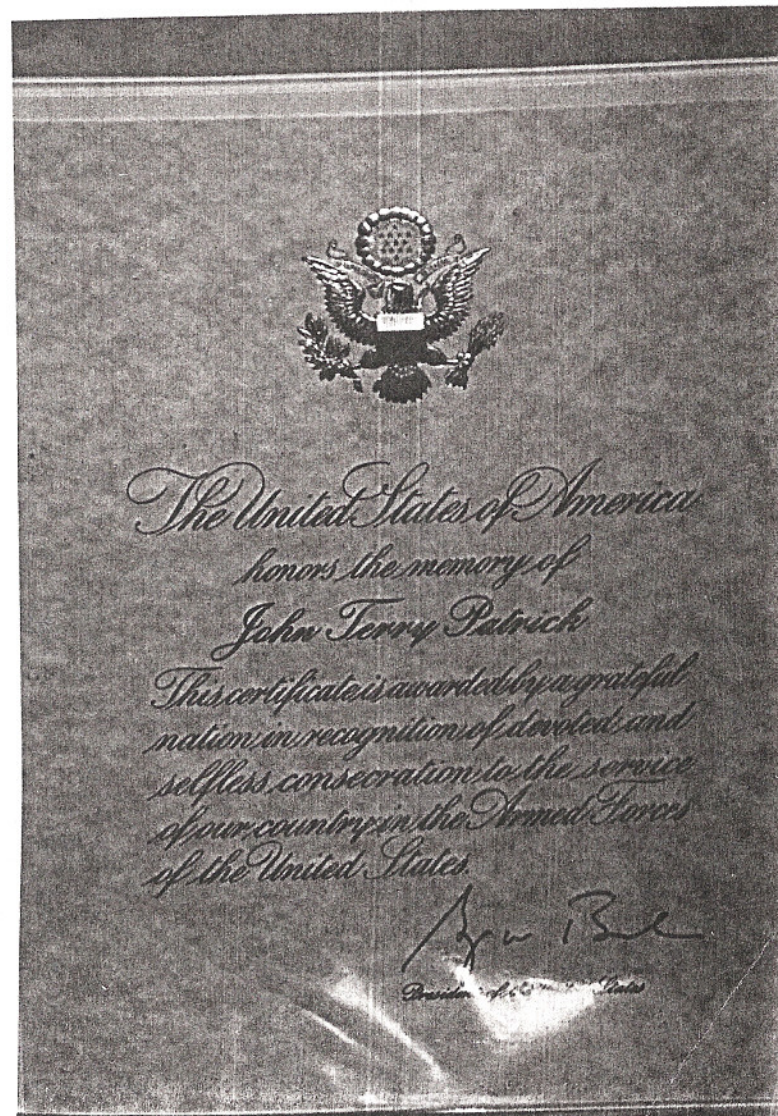 The United States of America
honors the memory of
John Terry Patrick
This certificate is awarded by a grateful
nation in recognition of devoted and
selfless consecration to the service
of our country in the Armed Forces
of the United States.
President of States